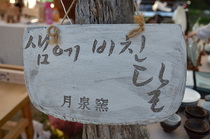 샘에 비친
달
月泉窯